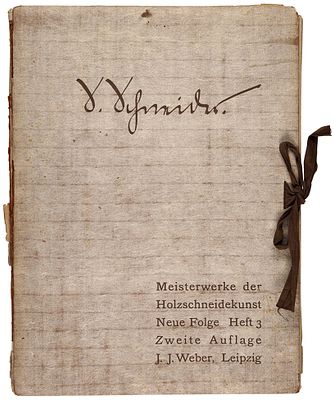 S. Schneider.
Meisterwerke der
Holzschneidekunst
Neue Folge Heft 3
Zweite Auflage
J. J. Weber, Leipzig